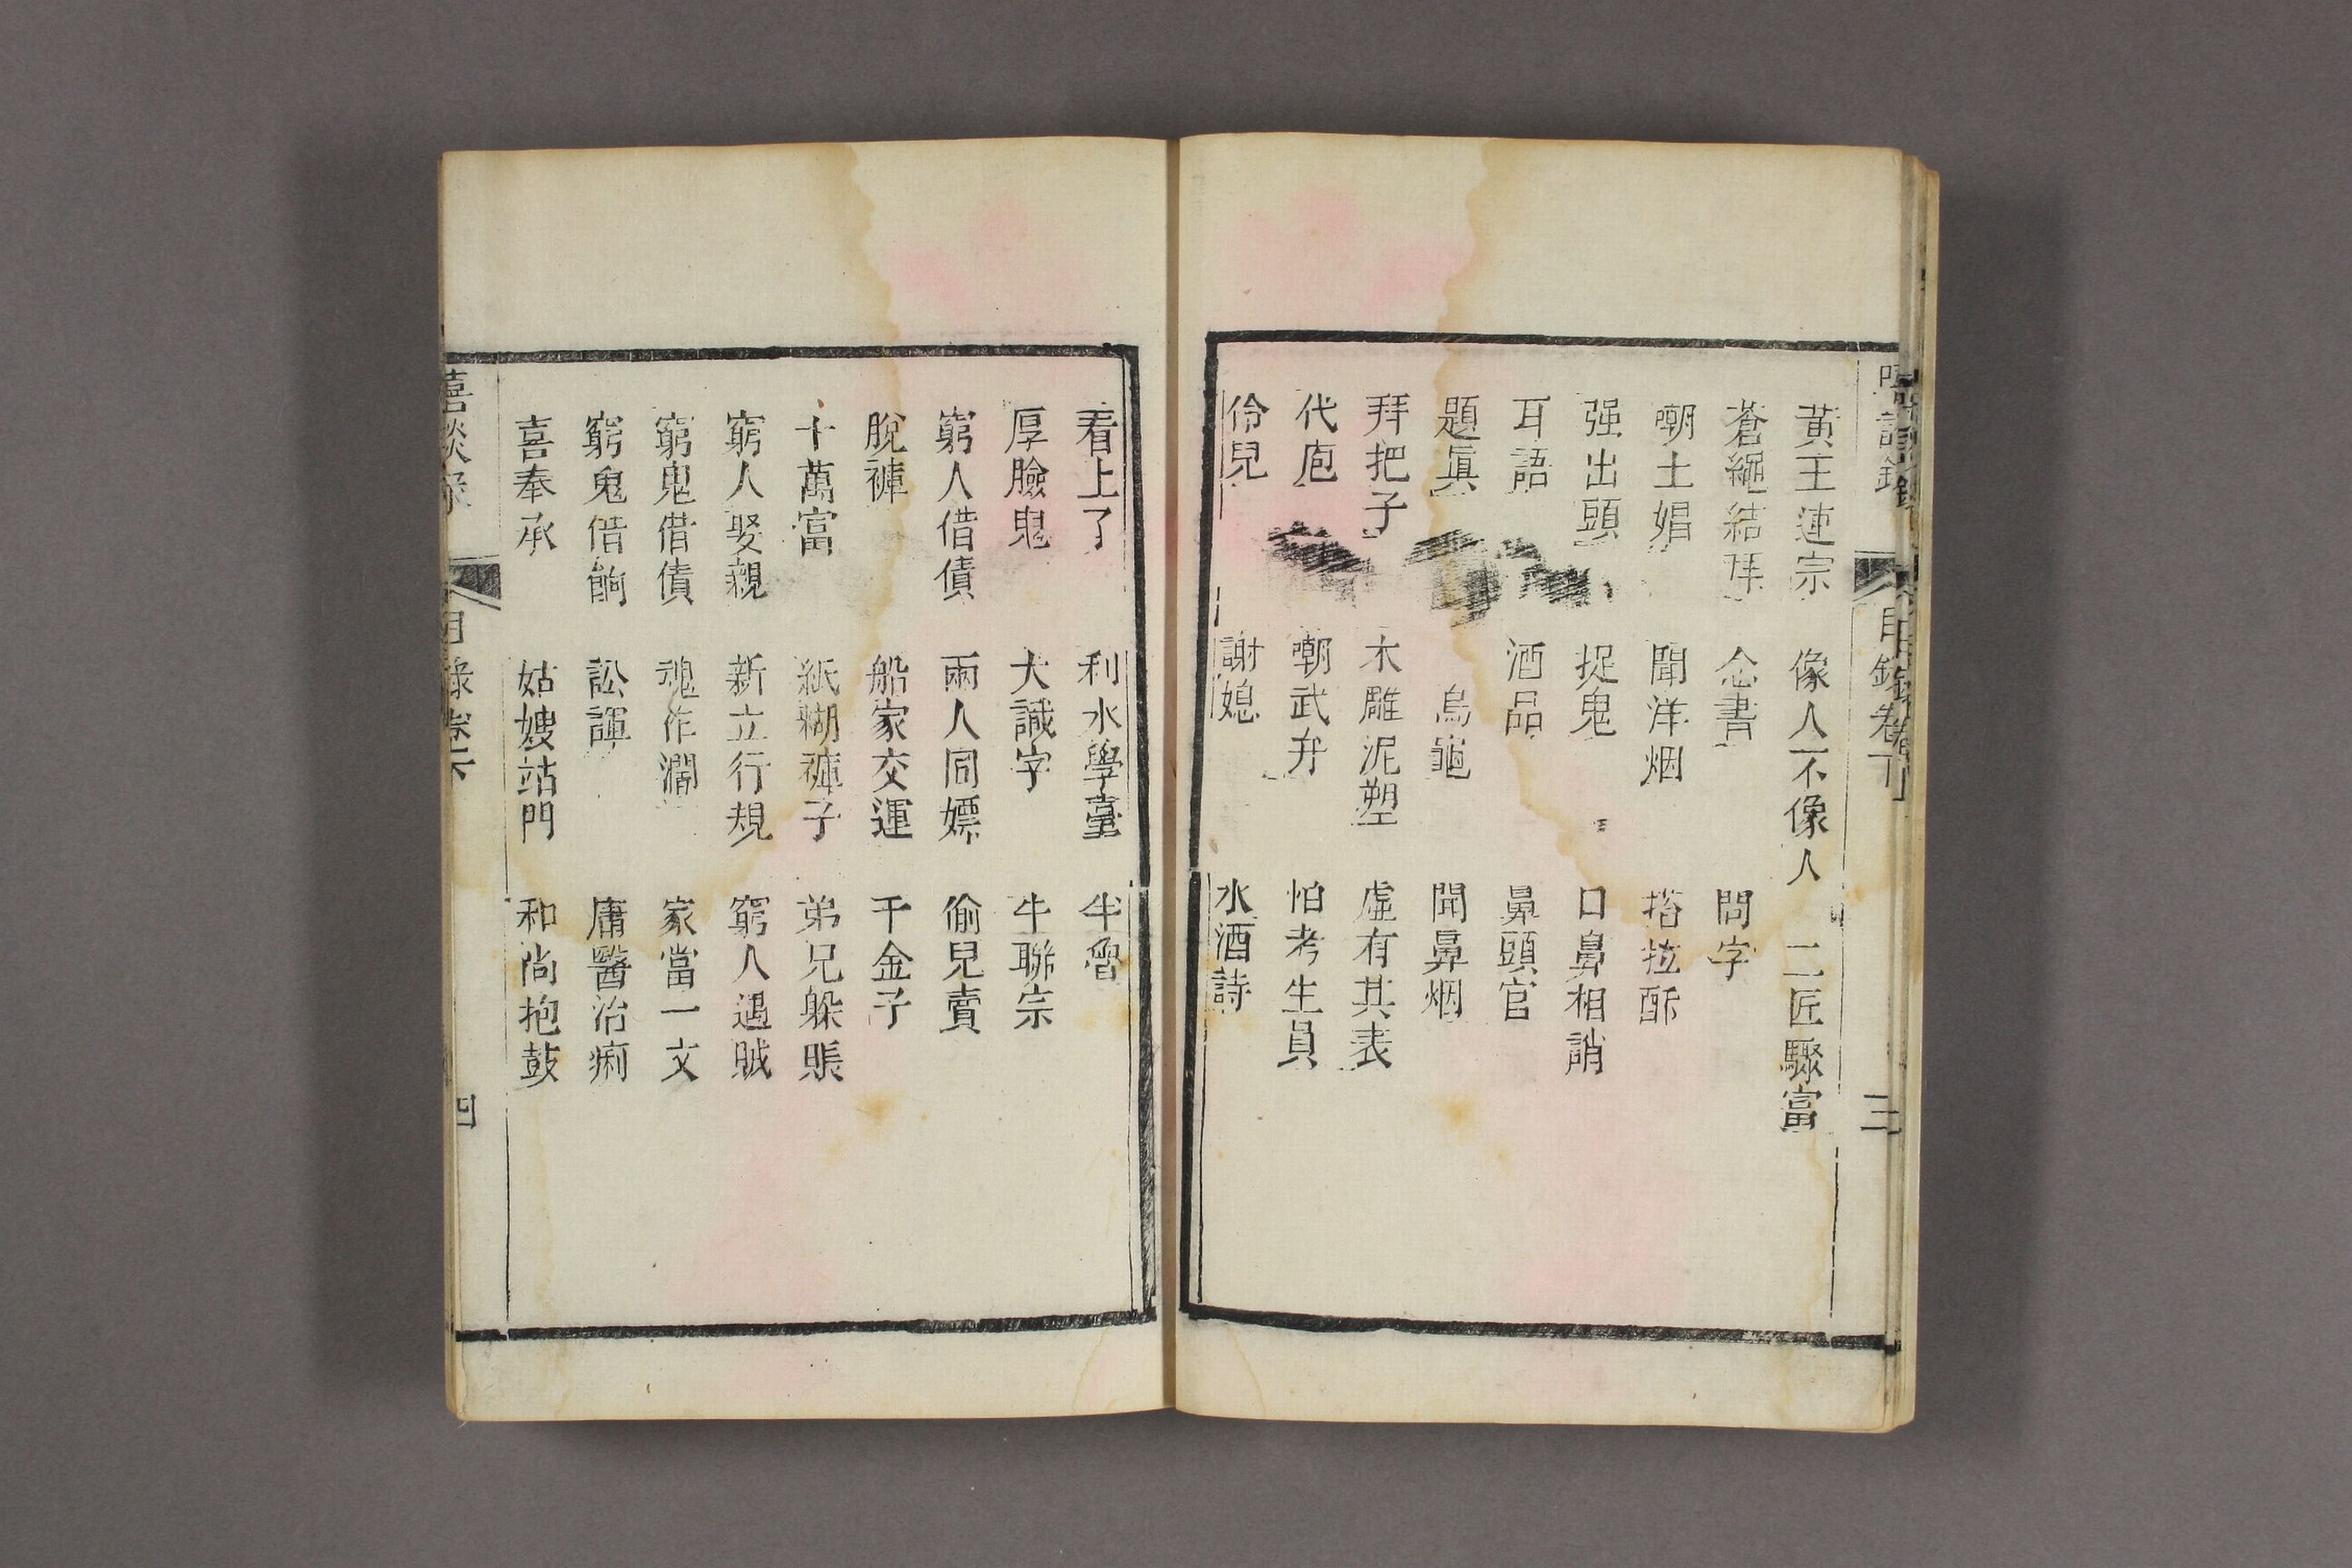 黃王連宗 像人不像人 二匠驟富
蒼繩結拜 念書 問字
嘲土娼 聞洋烟 搭拉酥
强出頭 捉鬼 口鼻相誚
耳語 酒品 鼻頭官
題真 烏龜 聞鼻烟
拜把子 木雕泥塑 虛有其表
代庖 嘲武弁 怕考生員
伶兒 謝媳 水酒詩
目錄卷下 三
看上了 利水學臺 牛魯
厚臉鬼 大識字 牛聯宗
窮人借債 兩人同嫖 偷兒賣
脫褲 船家交運 千金子
十萬富 紙糊褲子 弟兄躲賬
窮人娶親 新立行規 窮人遇賊
窮鬼借債 魂作濶 家當一文
窮鬼借餉 訟諢 庸醫治痢
喜奉承 姑嫂站門 和尚抱鼓
嘻談录 目錄卷下 四